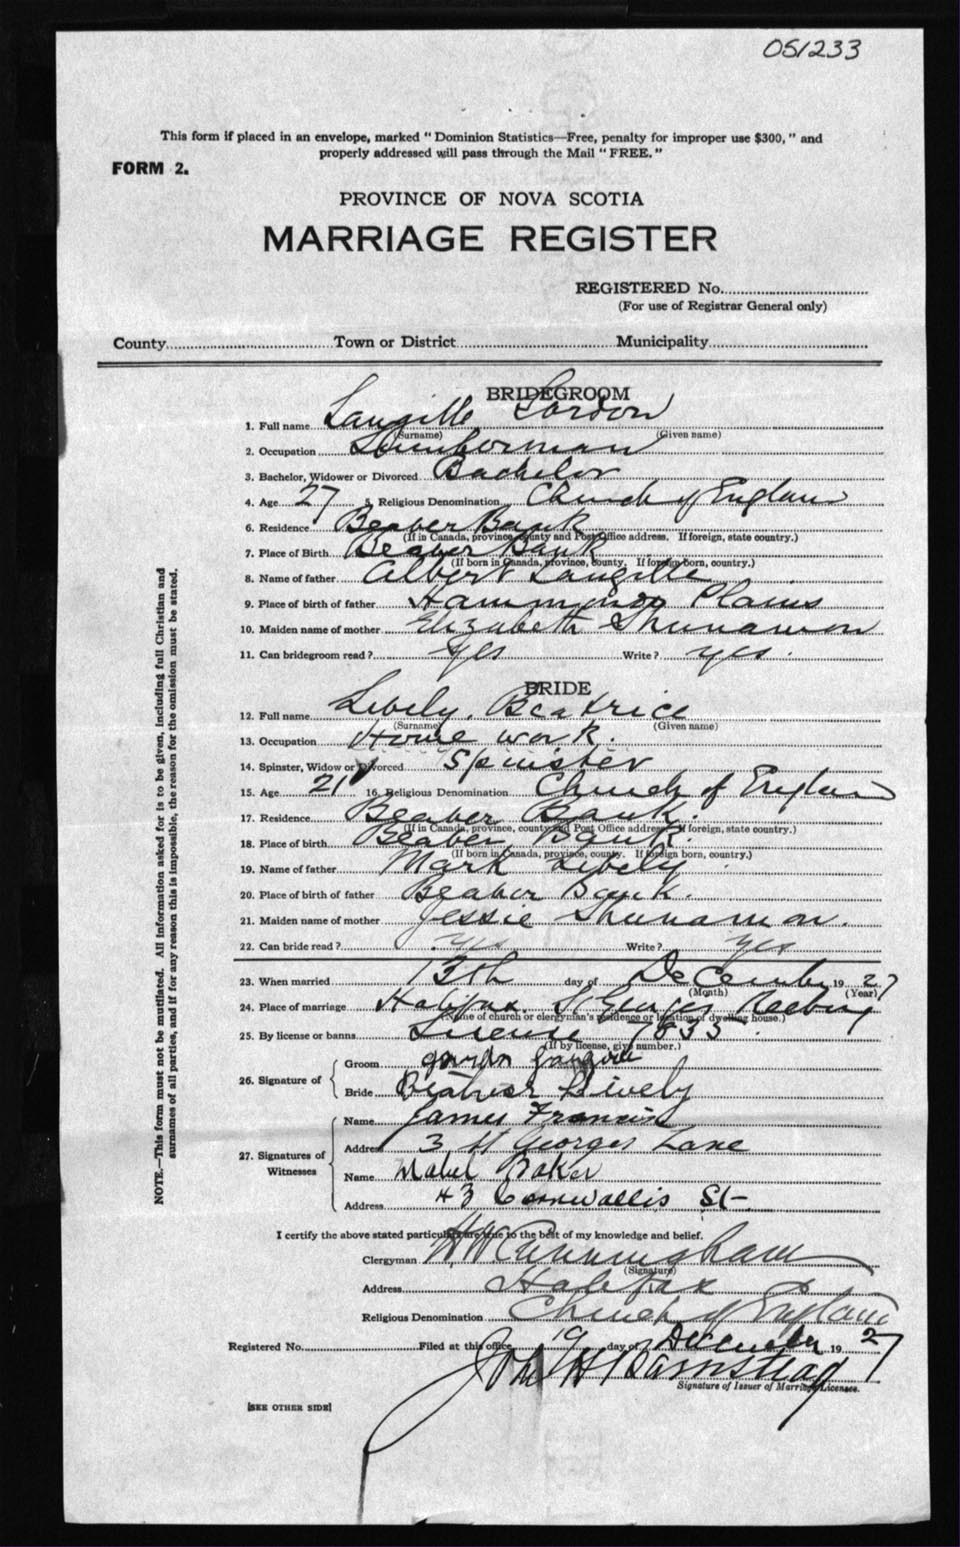 051233
This form if placed in an envelope, marked "Dominion Statistics—Free, penalty for improper use $300," and
properly addressed will pass through the Mail "FREE."
FORM 2.
PROVINCE OF NOVA SCOTIA
MARRIAGE REGISTER
REGISTERED No.
(For use of Registrar General only)
County Town or District Municipality
BRIDEGROOM
1. Full name Langille Gordon
(Surname) (Given name)
2. Occupation Lumberman
3. Bachelor, Widower or Divorced Bachelor
4. Age 27 5. Religious Denomination Church of England
6. Residence Beaver Bank
(If in Canada, province, county and Post Office address. If foreign, state country.)
7. Place of Birth Beaver Bank
(If born in Canada, province, county. If foreign born, country.)
8. Name of father Albert Langille
9. Place of birth of father Hammonds Plains
10. Maiden name of mother Elizabeth Shunamon
11. Can bridegroom read? Yes Write? yes.
BRIDE
12. Full name Lively, Beatrice
(Surname) (Given name)
13. Occupation House work.
14. Spinster, Widow or Divorced Spinster
15. Age 21 16. Religious Denomination Church of England
17. Residence Beaver Bank.
(If in Canada, province, county and Post Office address. If foreign, state country.)
18. Place of birth Beaver Bank.
(If born in Canada, province, county. If foreign born, country.)
19. Name of father Mark Lively
20. Place of birth of father Beaver Bank.
21. Maiden name of mother Jessie Shunamon.
22. Can bride read? yes Write? yes
23. When married 13th day of December 1927
(Month) (Year)
24. Place of marriage Halifax St Georges Rectory
(Name of church or clergyman's residence or location of dwelling house.)
25. By license or banns License 7833
(If by license, give number.)
26. Signature of
Groom Gordon Langille
Bride Beatrice Lively
27. Signatures of Witnesses
Name James Francis
Address 3 St Georges Lane
Name Mabel Baker
Address 43 Cornwallis St-
I certify the above stated particulars are true to the best of my knowledge and belief.
Clergyman H W Cunningham
(Signature)
Address Halifax
Religious Denomination Church of England
Registered No. Filed at this office 19 day of December 1927
John H Barnstead
Signature of Issuer of Marriage Licenses.
[SEE OTHER SIDE]
NOTE.—This form must not be mutilated. All information asked for is to be given, including full Christian and
surnames of all parties, and if for any reason this is impossible, the reason for the omission must be stated.